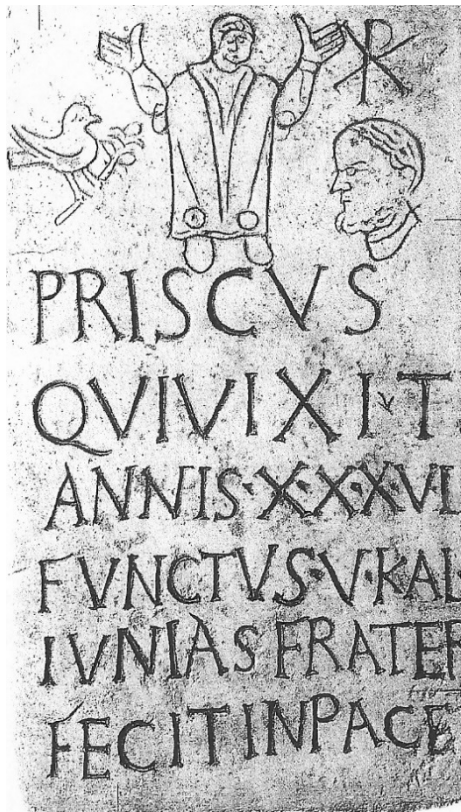 ☧
PRISCVS
QVIVIXIT
ANNIS·X·X·X·VI
FVNCTVS·V·KAL
IVNIAS FRATER
FECIT INPACE